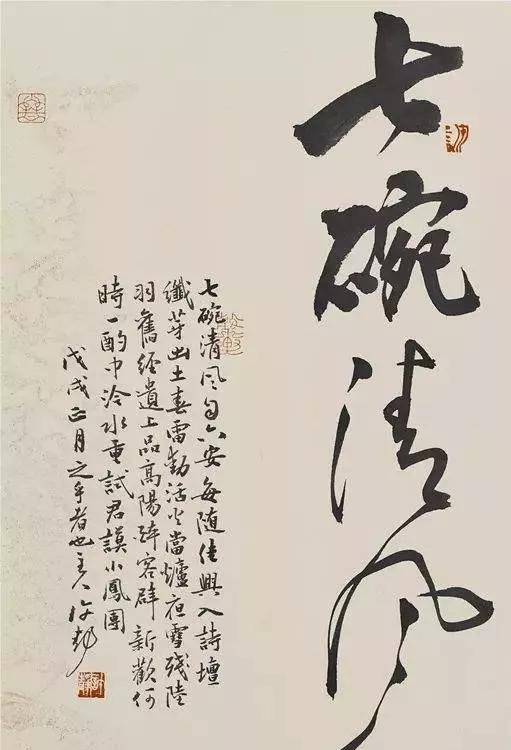 七碗清风
七碗清风自六安每随佳興入詩壇
纖芽出土春雷動活火當爐夜雪殘陸
羽舊經遺上品高陽醉客辟新歡何
時一酌中泠水重試君謨小鳳團
戊戌正月之乎者也主人